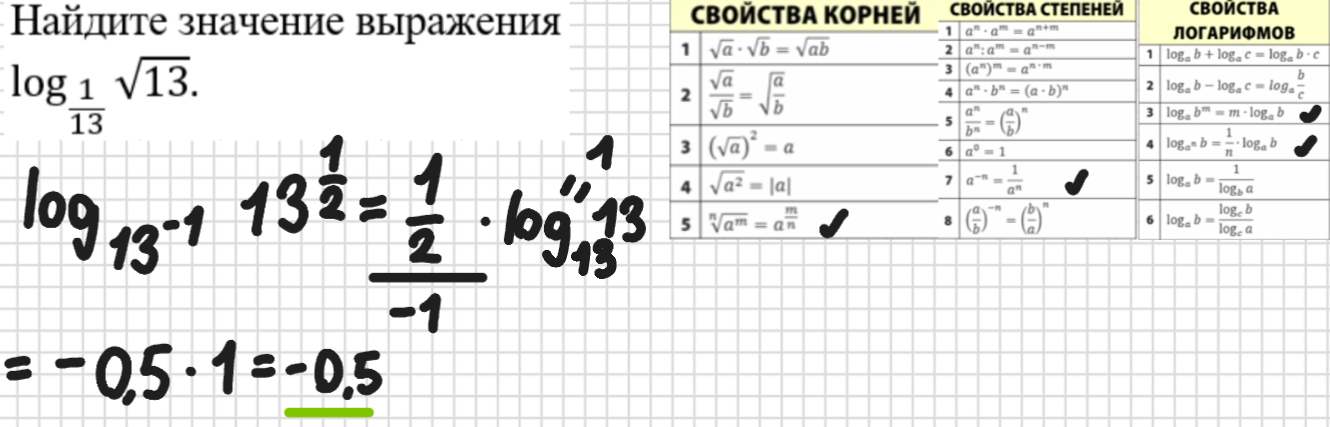 Найдите значение выражения
log_{1/13} √13.
log_{13^{-1}} 13^{1/2} = (1/2)/(-1) · log_{13} 13 " 1
= -0,5 · 1 = -0,5
СВОЙСТВА КОРНЕЙ
1 √a · √b = √ab
2 √a/√b = √(a/b)
3 (√a)² = a
4 √a² = |a|
5 ⁿ√aᵐ = a^{m/n} ✓
СВОЙСТВА СТЕПЕНЕЙ
1 aⁿ · aᵐ = aⁿ⁺ᵐ
2 aⁿ: aᵐ = aⁿ⁻ᵐ
3 (aⁿ)ᵐ = a^{n·m}
4 aⁿ · bⁿ = (a · b)ⁿ
5 aⁿ/bⁿ = (a/b)ⁿ
6 a⁰ = 1
7 a⁻ⁿ = 1/aⁿ ✓
8 (a/b)⁻ⁿ = (b/a)ⁿ
СВОЙСТВА
ЛОГАРИФМОВ
1 logₐ b + logₐ c = logₐ b · c
2 logₐ b − logₐ c = logₐ b/c
3 logₐ bᵐ = m · logₐ b ✓
4 log_{aⁿ} b = 1/n · logₐ b ✓
5 logₐ b = 1/log_b a
6 logₐ b = log_c b/log_c a